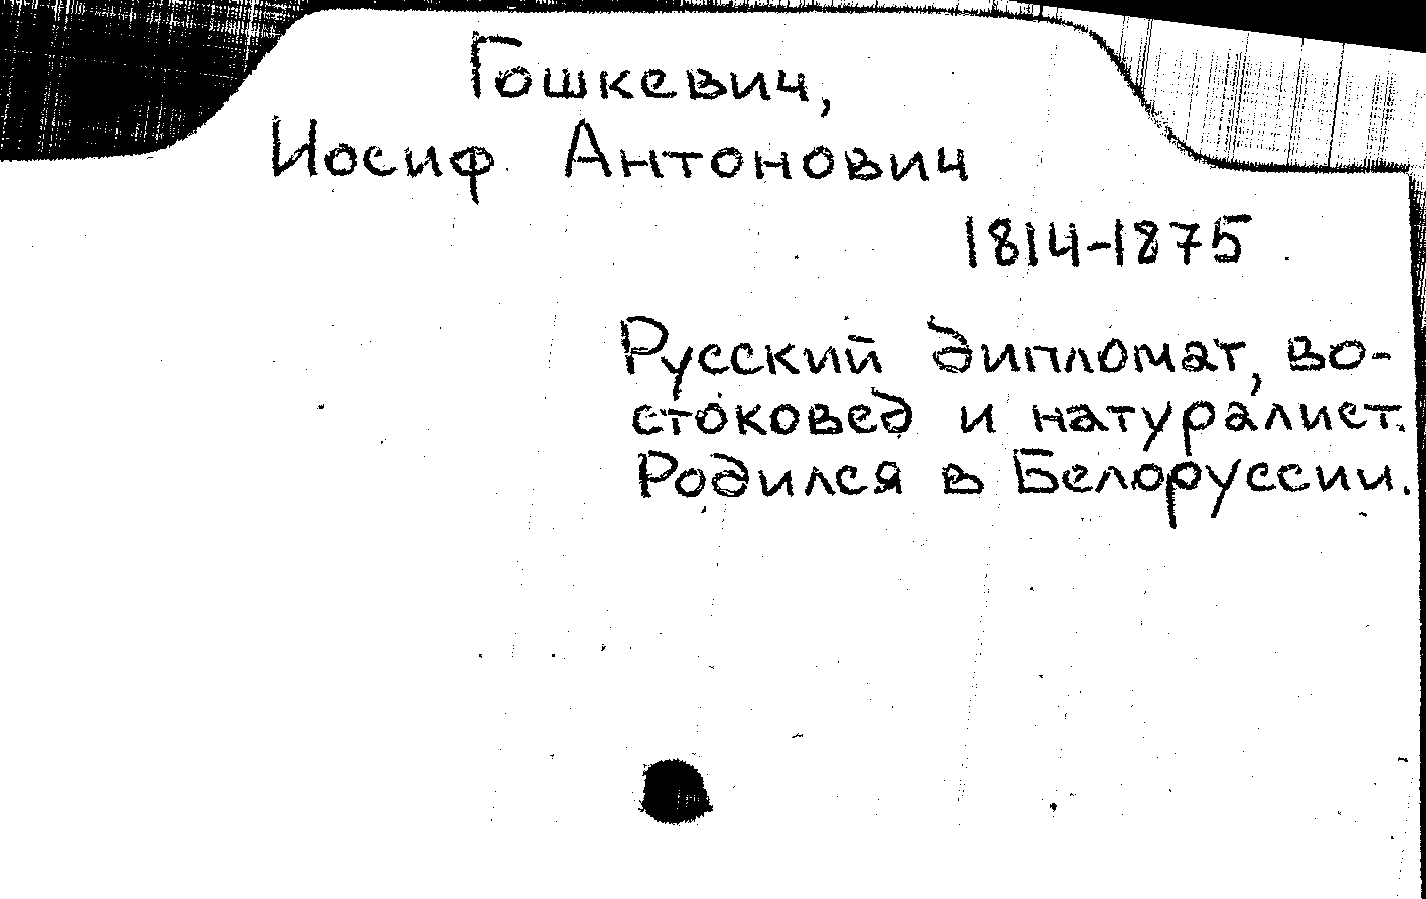 Гошкевич,
Иосиф Антонович
1814-1875
Русский дипломат, во-
стоковед и натуралист.
Родился в Белоруссии.